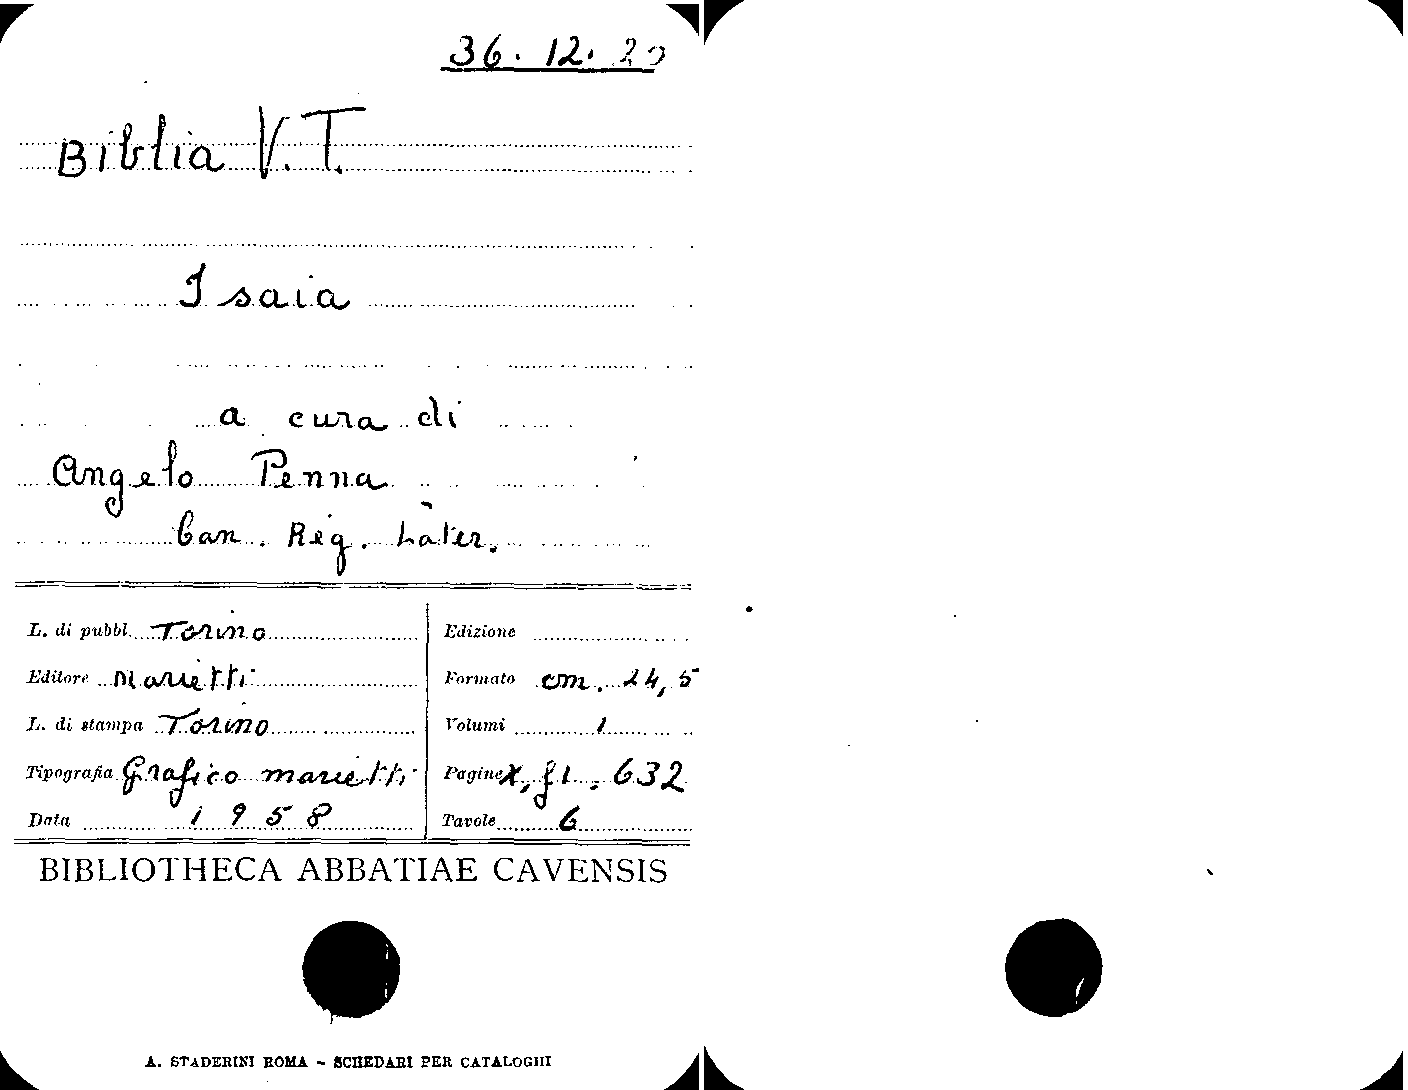 36. 12. 20
Biblia V.T.
Isaia
a cura di
Angelo Penna
Can. Reg. Later.
L. di pubbl. Torino
Edizione
Editore Marietti
Formato cm. 24,5
L. di stampa Torino
Volumi 1
Tipografia Grafico Marietti
Pagine X, f1. 632
Data 1958
Tavole 6
BIBLIOTHECA ABBATIAE CAVENSIS
A. STADERINI ROMA - SCHEDARI PER CATALOGHI